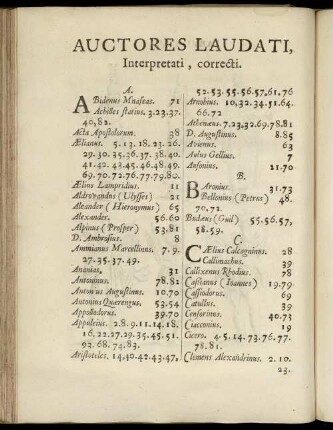 AUCTORES LAUDATI,
Interpretati, correcti.
A.
ABidenus Mnaseas. 71
Achilles statius. 3.23.37.
40,82.
Acta Apostolorum. 38
Ælianus. 5.13.18.23.26.
29.30.35.36.37.38.40.
41.42.43.45.46.48.49.
69.70.72.76.77.79.80.
Ælius Lampridius. 11
Aldrovandus (Ulysses) 21
Aleander (Hieronymus) 65
Alexander. 56.60
Alpinus (Prosper) 53.81
D. Ambrosius. 8
Ammianus Marcellinus. 7.9.
27.35.37.49.
Ananias. 31
Antoninus. 78.82
Antonius Augustinus. 10.70
Antonius Querengus. 53.54
Appollodorus. 39.70
Appuleius. 2.8.9.11.14.18,
16.22.27.29.35.45.51.
92.68.74.83.
Aristoteles. 14.40.42.43.47,
52.53.55.56.57.61.76
Arnobius. 10,32.34.51.64.
66.72
Athenæus. 7.23,32.69.78.81
D. Augustinus. 8.85
Avienus. 63
Aulus Gellius. 7
Ausonius. 21.70
B.
BAronius. 31.73
Bellonius (Petrus) 48.
70,72.
Budæus (Guil) 55.56.57,
58.59.
C.
CÆlius Calcagninus. 28
Callimachus. 39
Callixenus Rhodius. 78
Cassianus (Ioannes) 19.79
Cassiodorus. 69
Catullus. 39
Censorinus. 40.73
Ciacconius. 19
Cicero. 4.5.14.73.76.77.
78.81.
Clemens Alexandrinus. 2.10.
23.